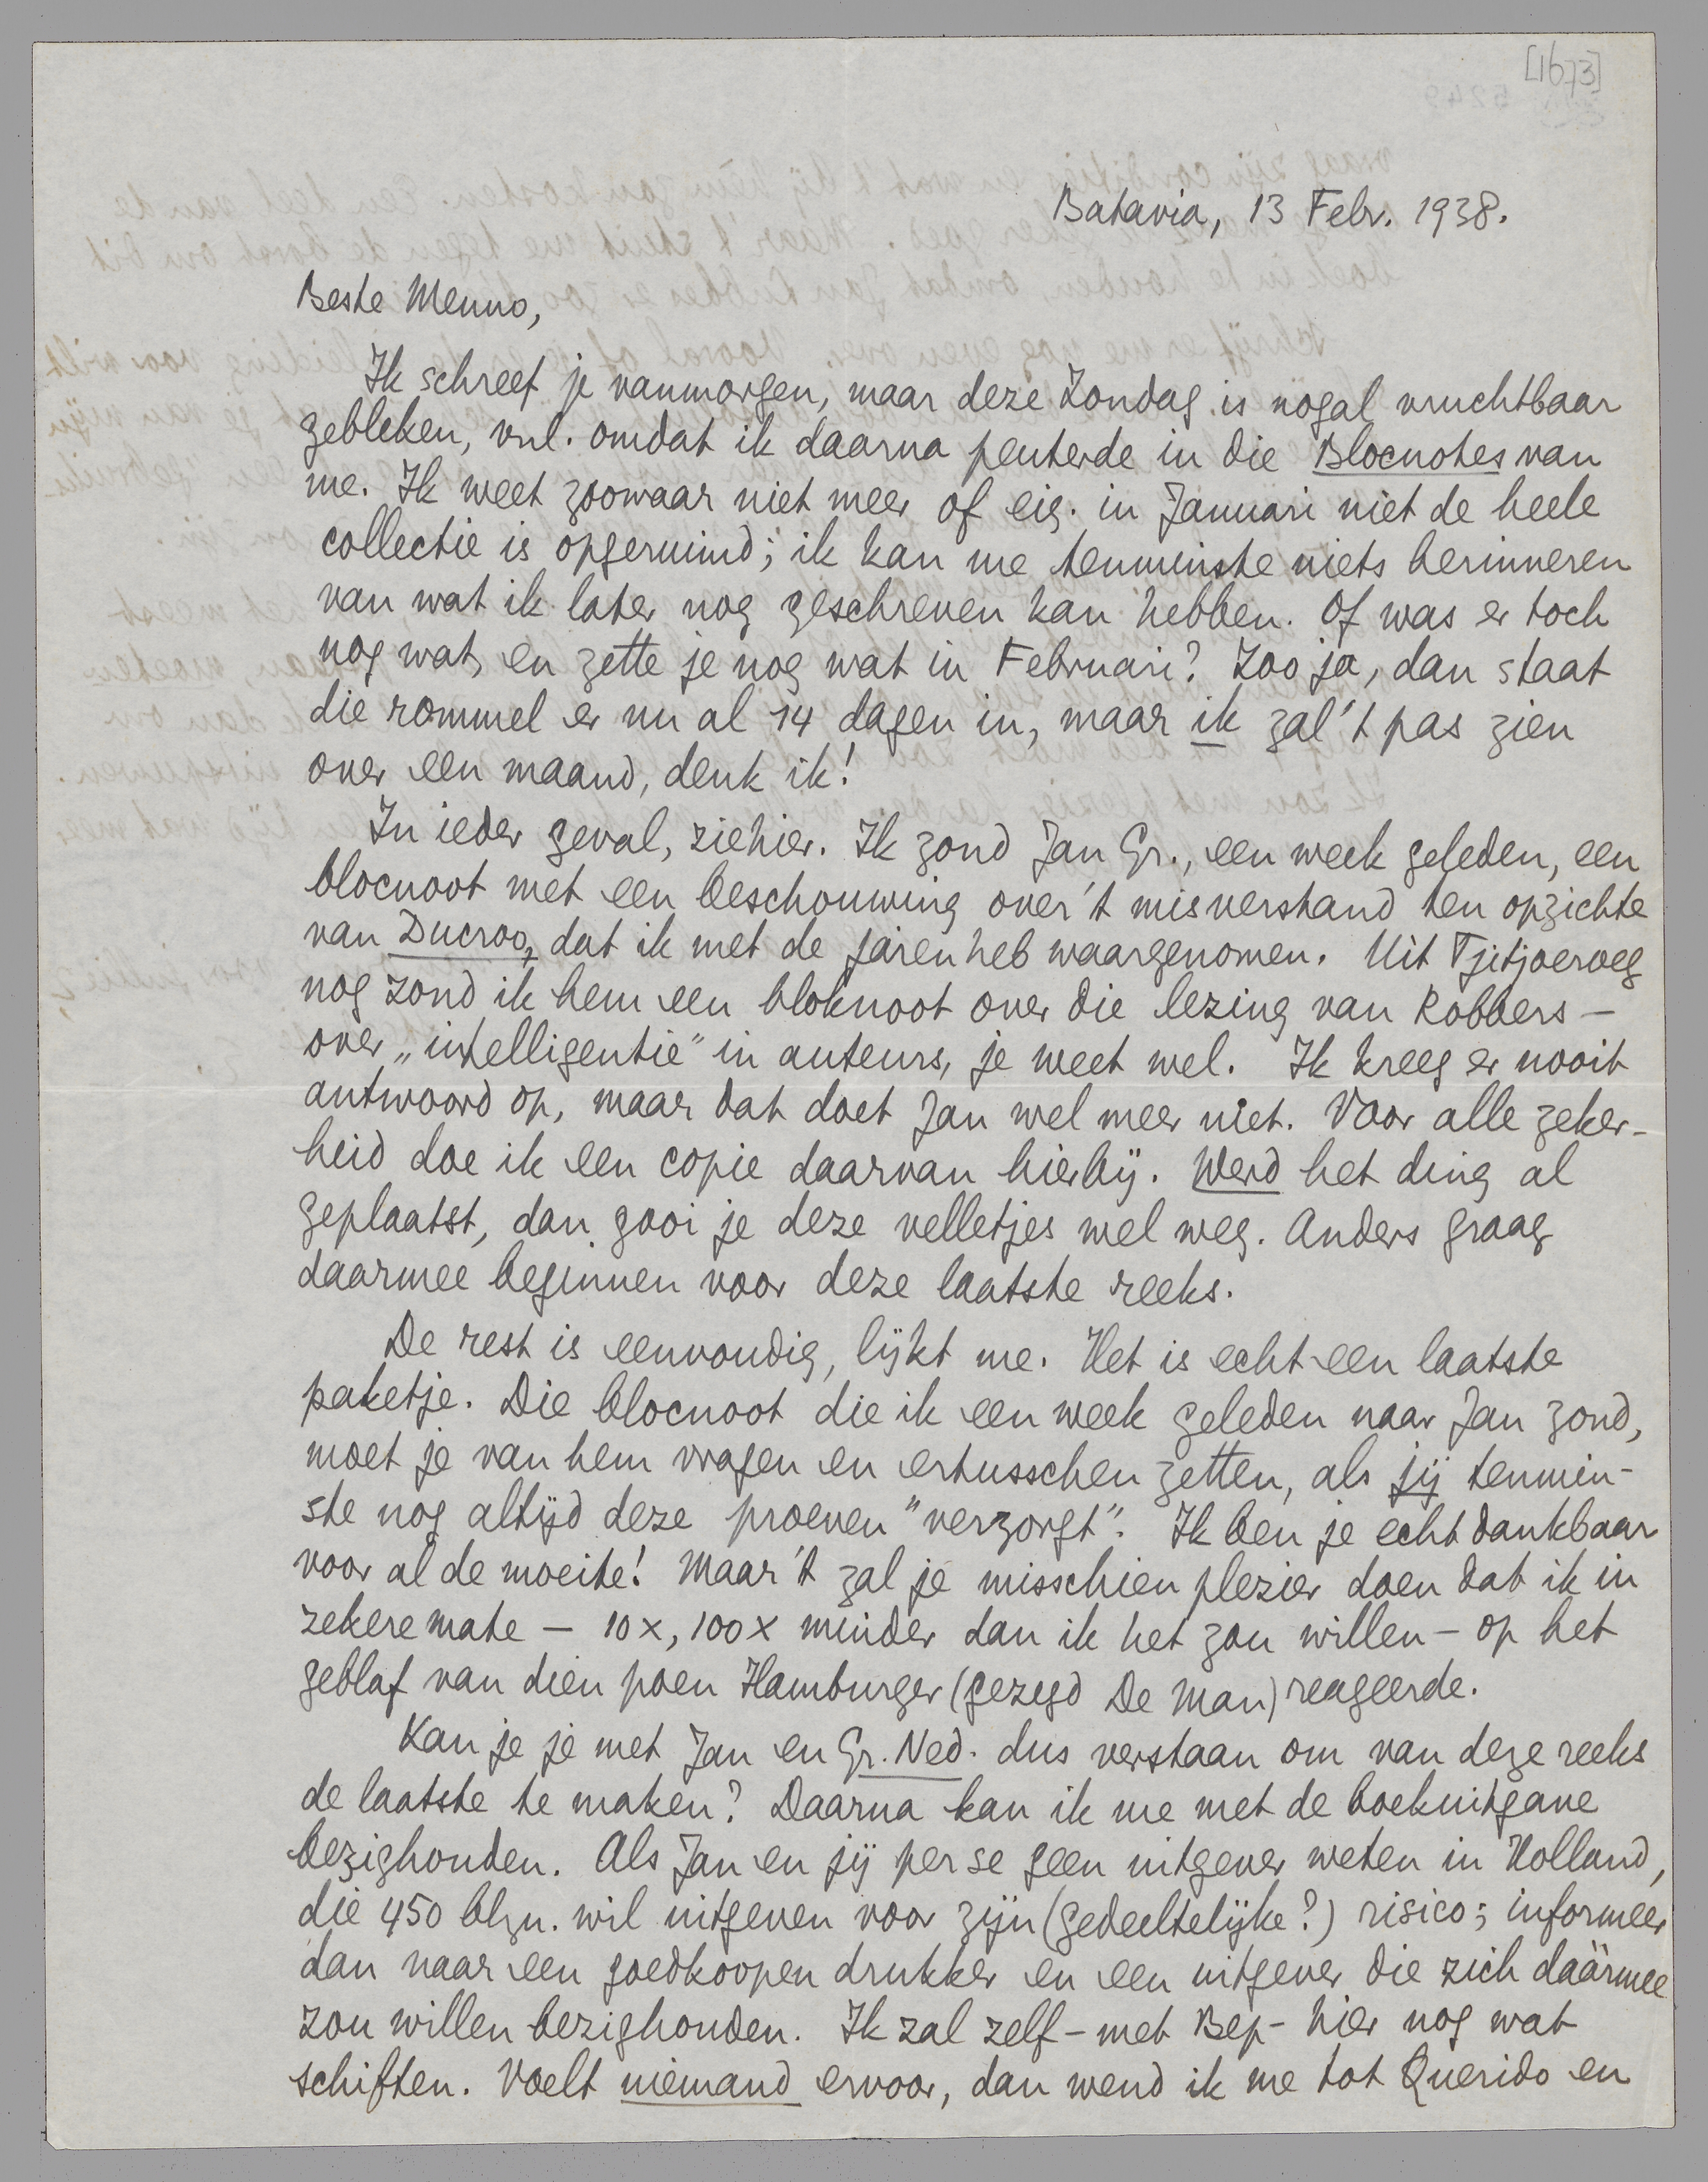 [1673]
Batavia, 13 Febr. 1938.
Beste Menno,
Ik schreef je vanmorgen, maar deze Zondag is nogal vruchtbaar
gebleken, vnl. omdat ik daarna peuterde in die Blocnotes van
me. Ik weet zoowaar niet meer of eig. in Januari niet de heele
collectie is opgeruimd; ik kan me tenminste niets herinneren
van wat ik later nog geschreven kan hebben. Of was er toch
nog wat, en zette je nog wat in Februari? Zoo ja, dan staat
die rommel er nu al 14 dagen in, maar ik zal 't pas zien
over een maand, denk ik!
In ieder geval, ziehier. Ik zond Jan Gr., een week geleden, een
blocnoot met een beschouwing over 't misverstand ten opzichte
van Ducroo, dat ik met de jaren heb waargenomen. Uit Tjitjoeroeg
nog zond ik hem een bloknoot over die lezing van Robbers —
over „intelligentie" in auteurs, je weet wel. Ik kreeg er nooit
antwoord op, maar dat doet Jan wel meer niet. Voor alle zeker-
heid doe ik een copie daarvan hierbij. Werd het ding al
geplaatst, dan gooi je deze velletjes wel weg. Anders graag
daarmee beginnen voor deze laatste reeks.
De rest is eenvoudig, lijkt me. Het is echt een laatste
paketje. Die blocnoot die ik een week geleden naar Jan zond,
moet je van hem vragen en ertusschen zetten, als jij tenmin-
ste nog altijd deze proeven "verzorgt". Ik ben je echt dankbaar
voor al de moeite! Maar 't zal je misschien plezier doen dat ik in
zekere mate — 10x, 100x minder dan ik het zou willen — op het
geblaf van dien poen Hamburger (gezegd De Man) reageerde.
Kan je je met Jan en Gr. Ned. dus verstaan om van deze reeks
de laatste te maken? Daarna kan ik me met de boekuitgave
bezighouden. Als Jan en jij per se geen uitgever weten in Holland,
die 450 blzn. wil uitgeven voor zijn (gedeeltelijke?) risico; informeer
dan naar een goedkoopen drukker en een uitgever die zich dáármee
zou willen bezighouden. Ik zal zelf – met Bep – hier nog wat
schiften. Voelt niemand ervoor, dan wend ik me tot Querido en